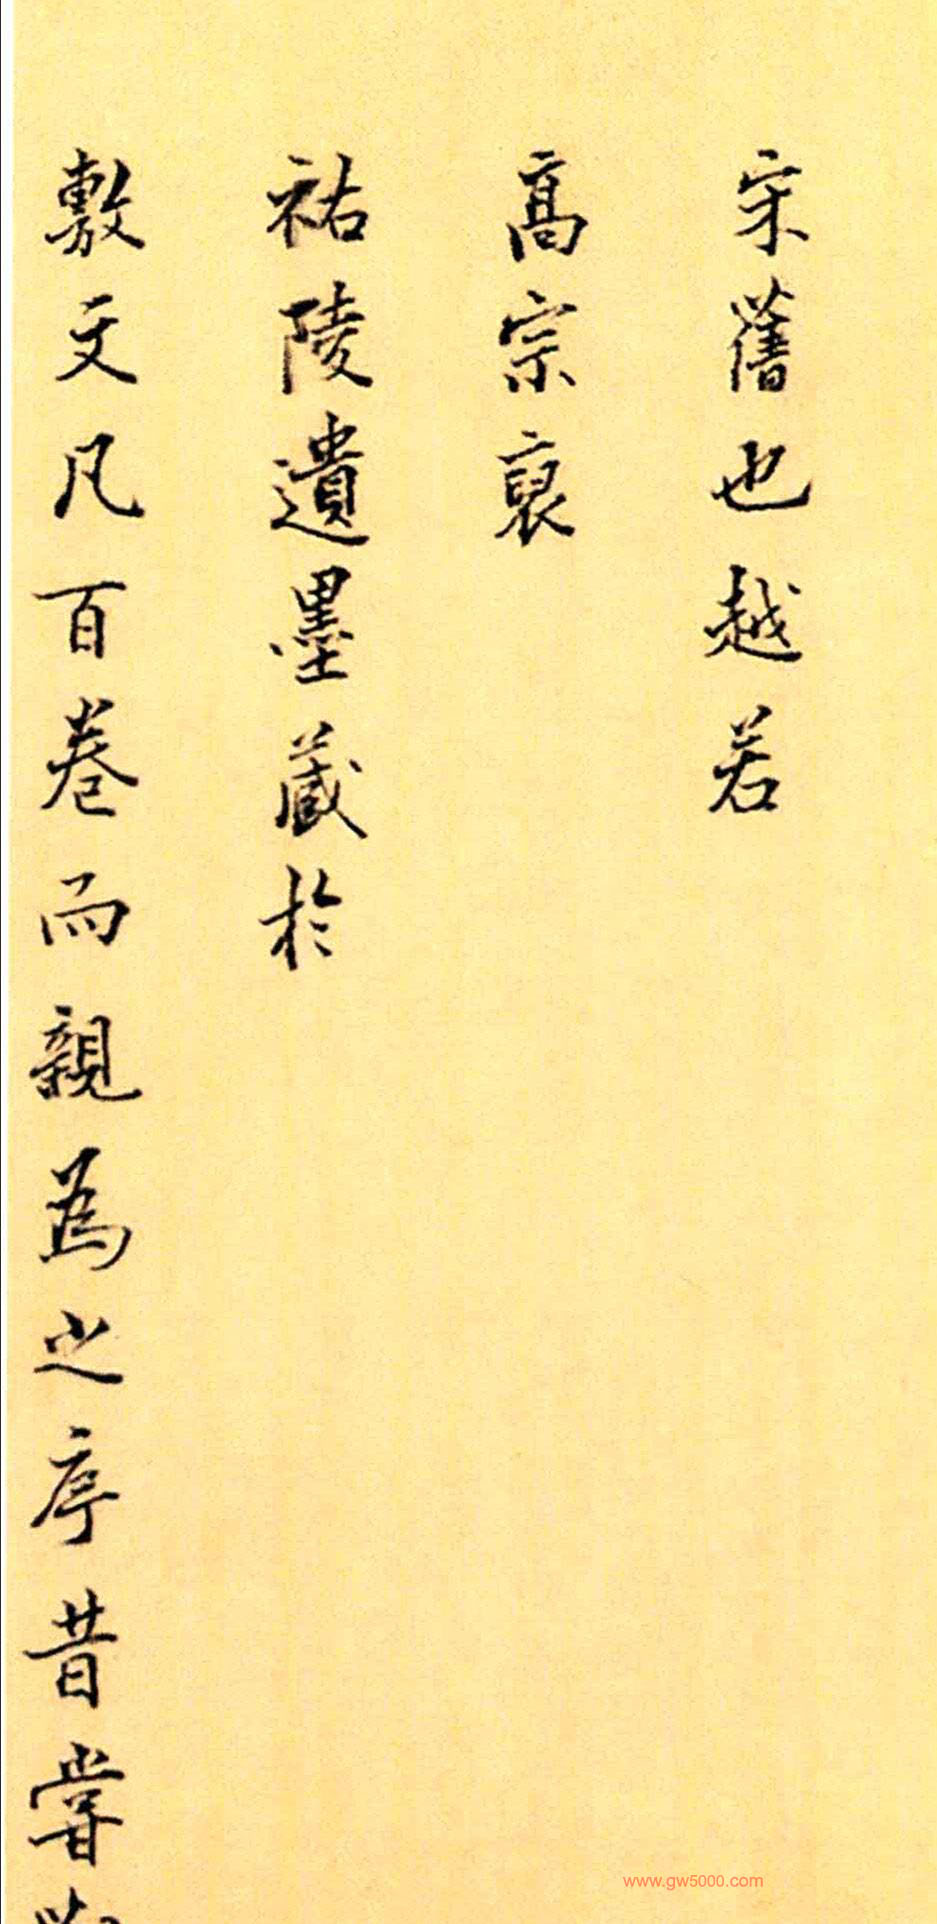 宋舊也越若
高宗裒
祐陵遺墨藏於
敷文凡百卷而親為之序昔嘗
www.gw5000.com